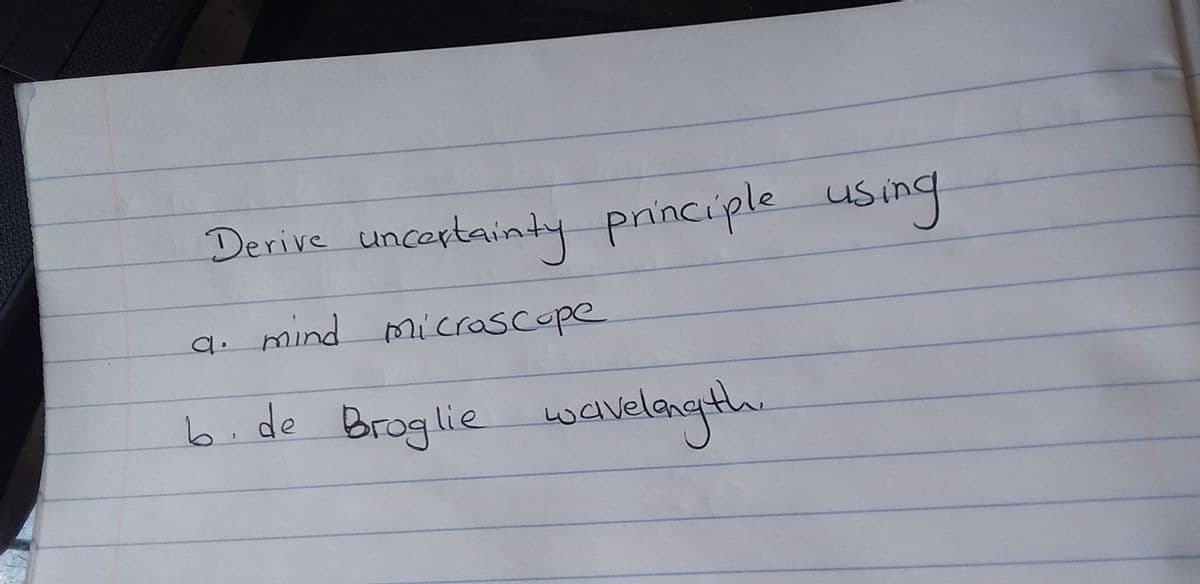 Derive uncertainty principle using
a. mind microscope
b. de Broglie wavelength.